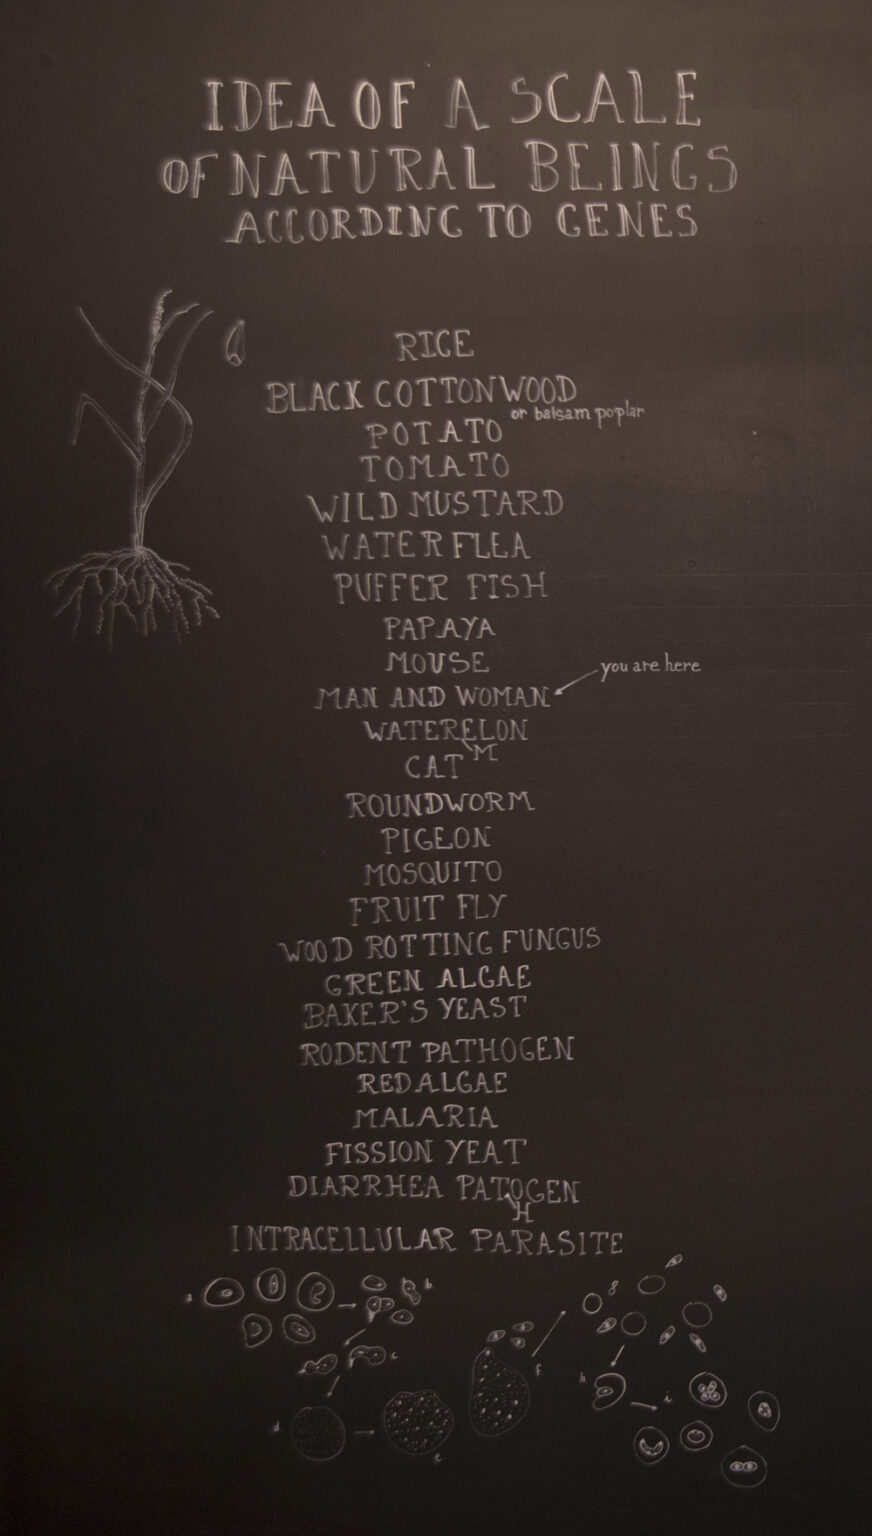 IDEA OF A SCALE
OF NATURAL BEINGS
ACCORDING TO GENES
RICE
BLACK COTTONWOOD
or balsam poplar
POTATO
TOMATO
WILD MUSTARD
WATER FLEA
PUFFER FISH
PAPAYA
MOUSE
you are here
MAN AND WOMAN
WATERELON
M
CAT
ROUNDWORM
PIGEON
MOSQUITO
FRUIT FLY
WOOD ROTTING FUNGUS
GREEN ALGAE
BAKER'S YEAST
RODENT PATHOGEN
RED ALGAE
MALARIA
FISSION YEAT
DIARRHEA PATOGEN
H
INTRACELLULAR PARASITE
a
b
c
d
e
f
g
h
i